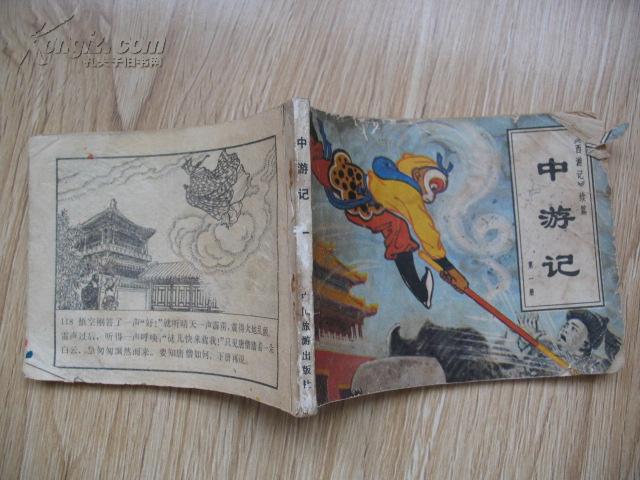 kongfz.com
孔夫子旧书网
118 悟空刚答了一声“好!”就听晴天一声霹雳,震得火地乱颤,
雷声过后,听得一声呼唤:“徒儿快来救我!”只见唐僧踏着一朵
白云、急匆匆飘然而来。要知唐僧如何,下册再说。
中游记 一
中国旅游出版社
《西游记》续篇
中游记
第一册